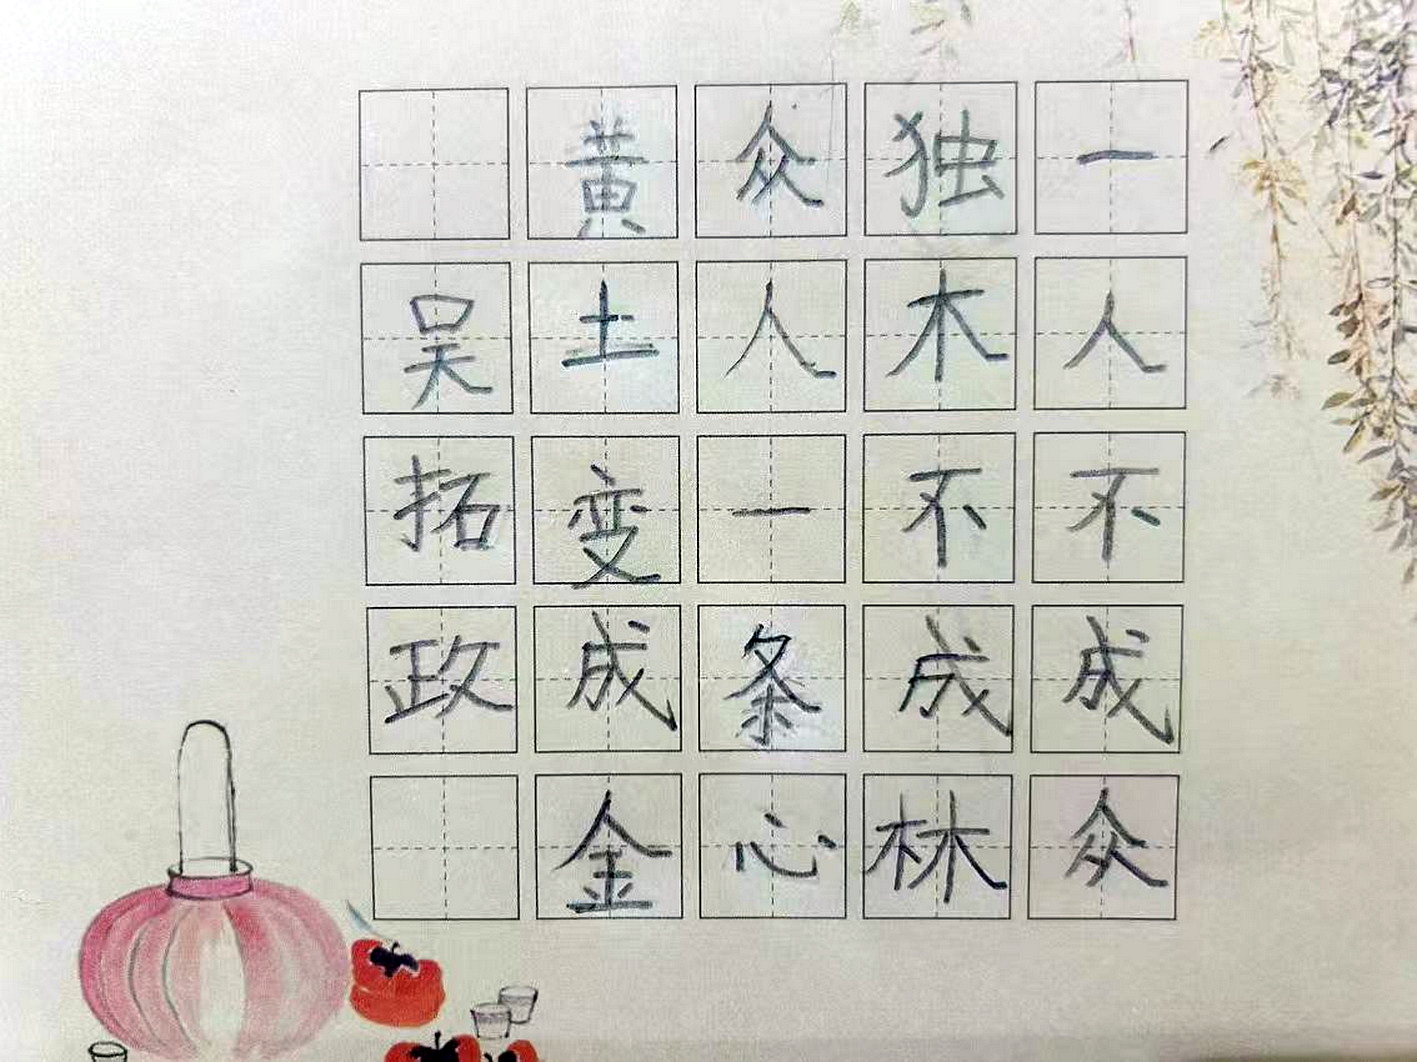 一人不成众
独木不成林
众人一条心
黄土变成金
吴拓政